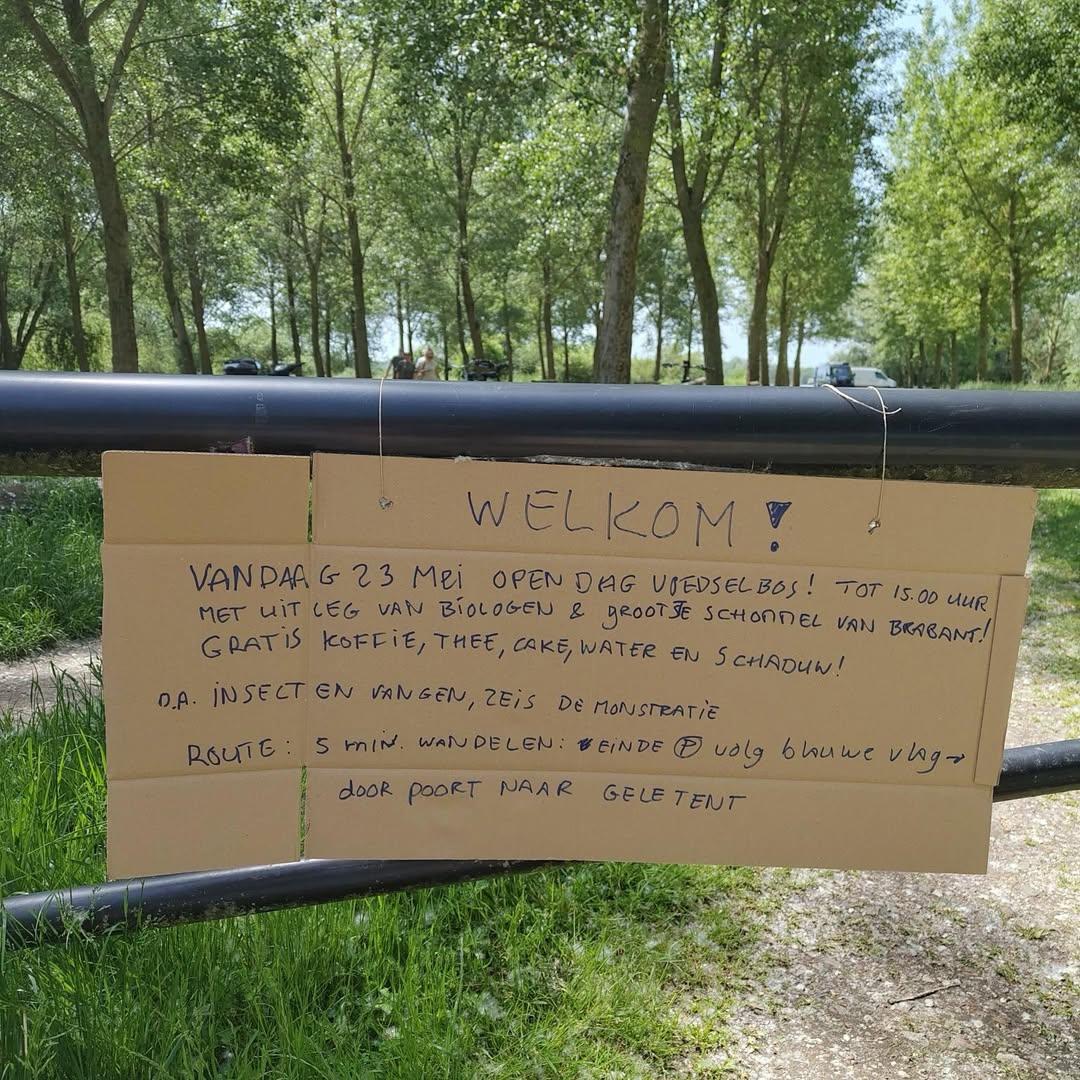 WELKOM!
VANDAAG 23 MEI OPEN DAG VOEDSELBOS! TOT 15.00 UUR
MET UITLEG VAN BIOLOGEN & GROOTSTE SCHOMMEL VAN BRABANT!
GRATIS KOFFIE, THEE, CAKE, WATER EN SCHADUW!
O.A. INSECTEN VANGEN, ZEIS DEMONSTRATIE
ROUTE: 5 min. WANDELEN: EINDE P volg blauwe vlag →
door poort NAAR GELE TENT